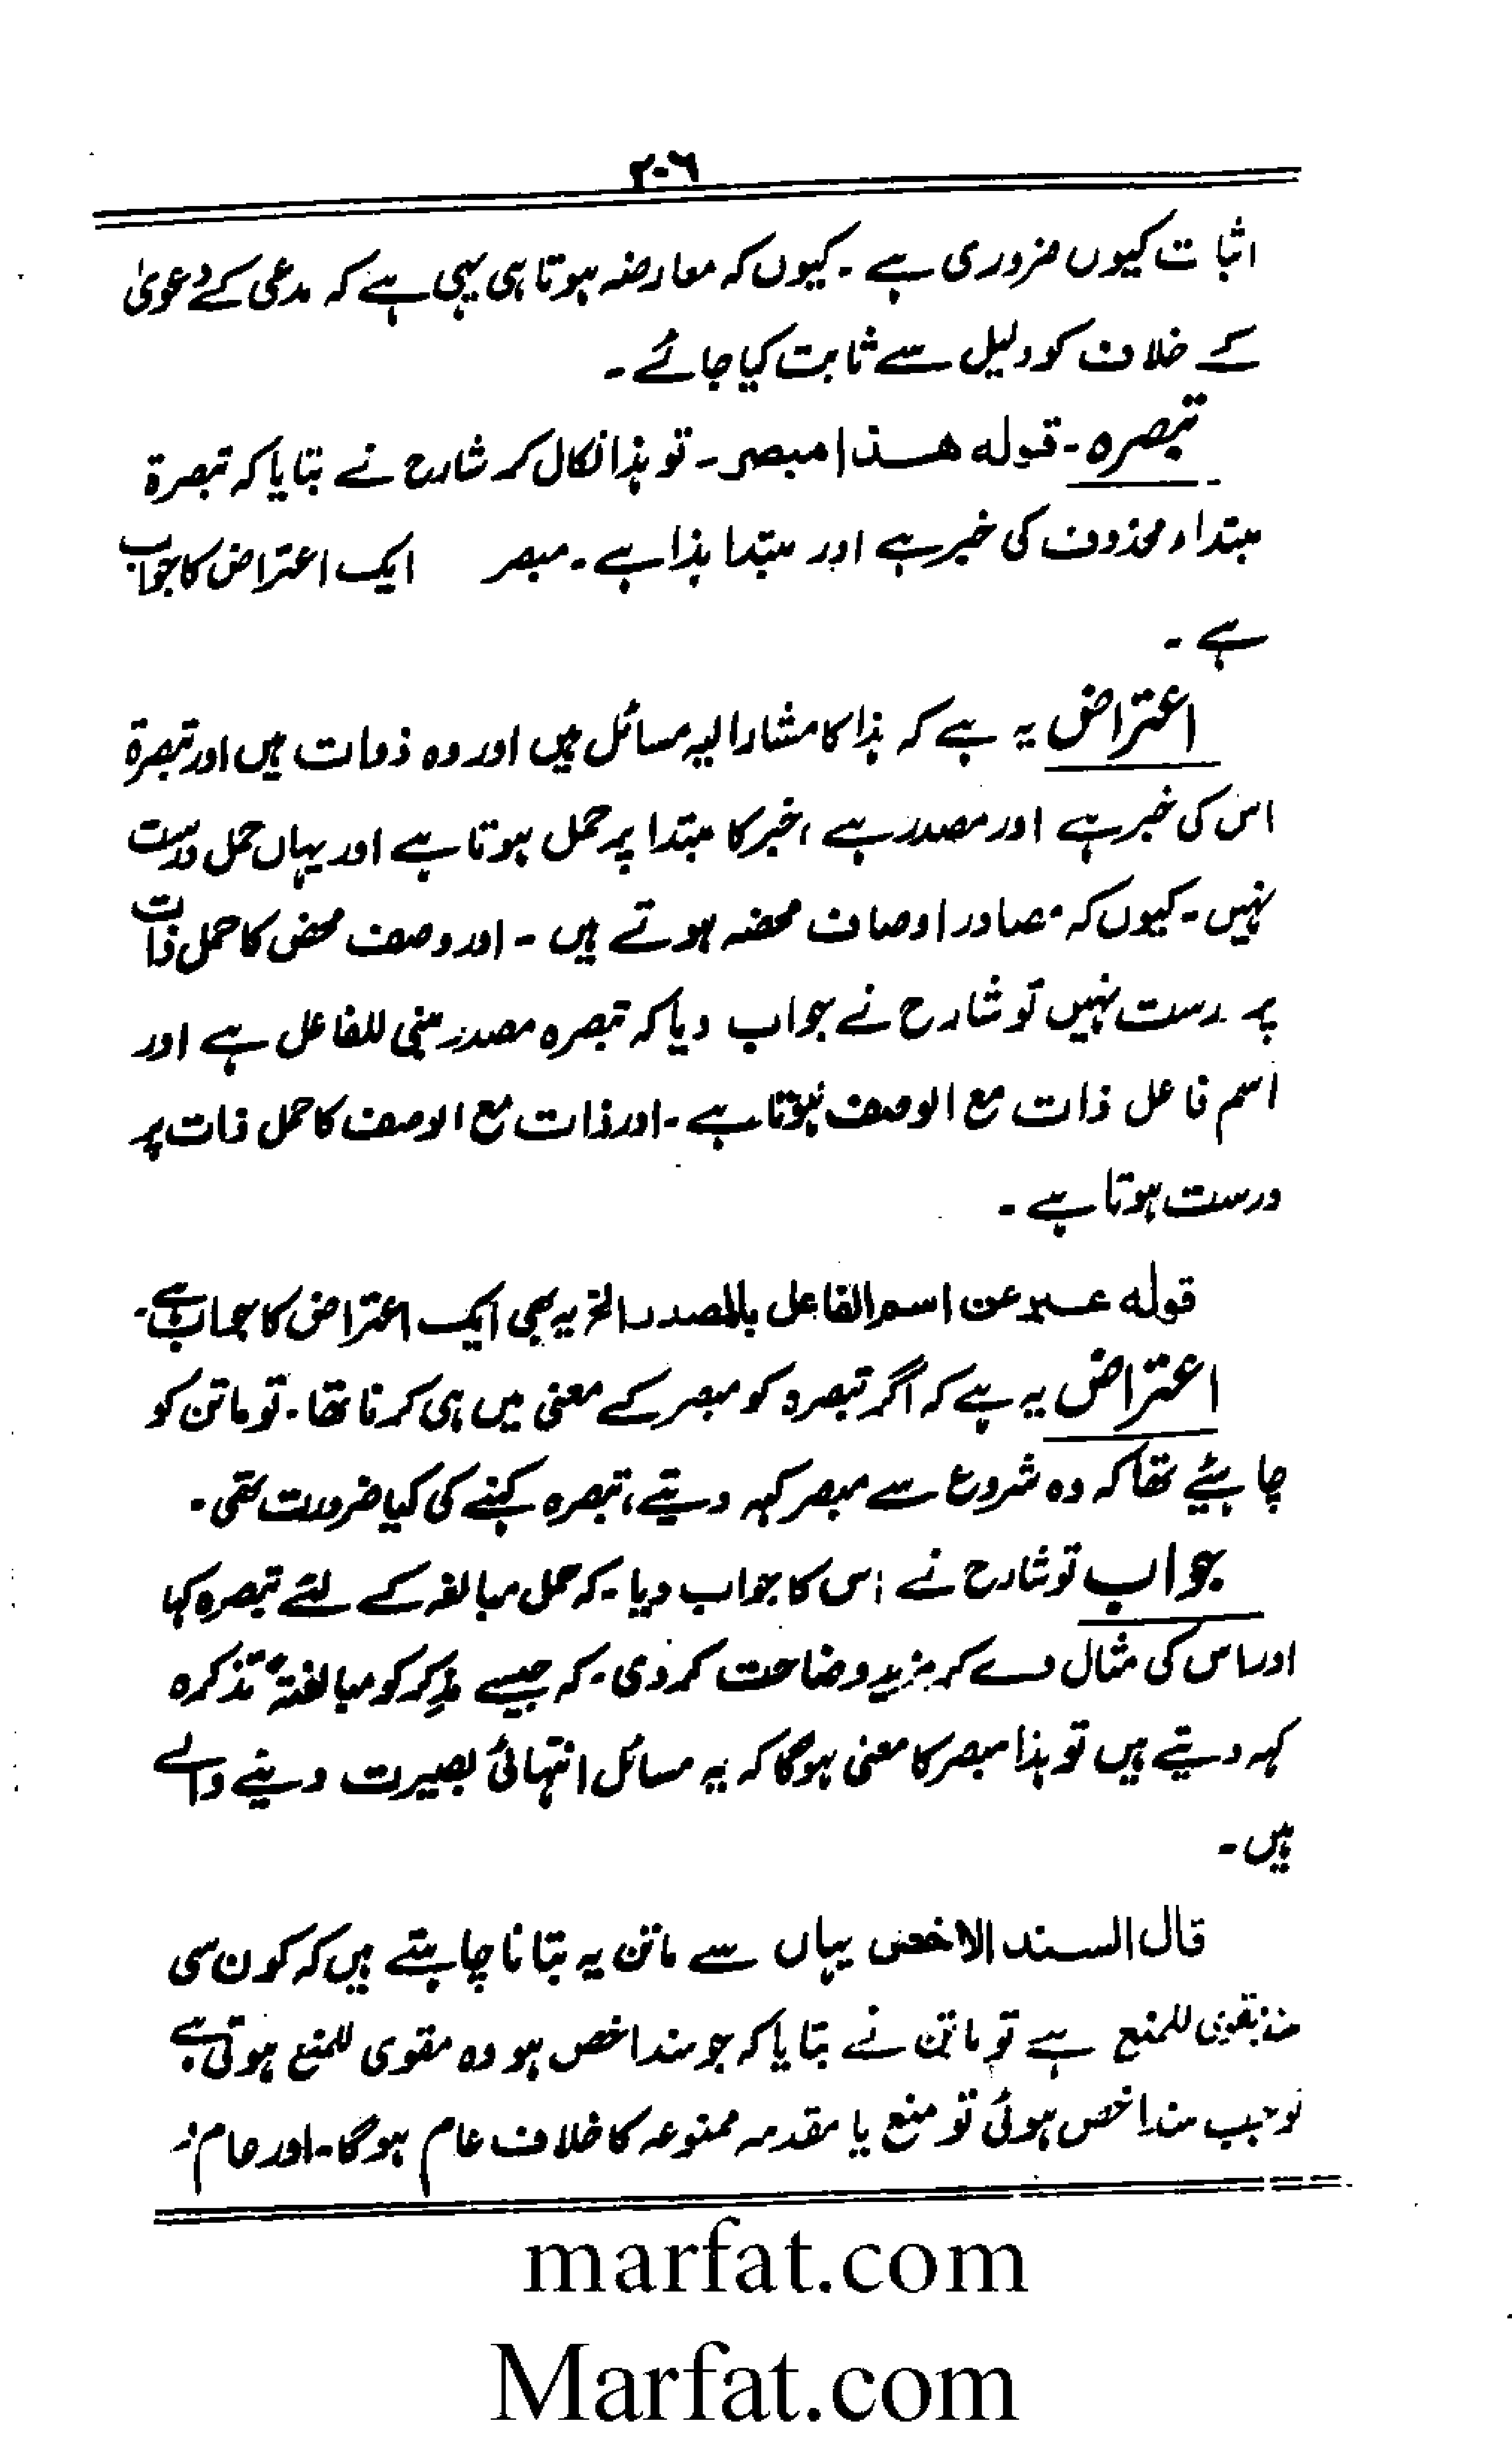 ۲۰۶
اثبات کیوں ضروری ہے ۔ کیوں کہ معارضہ ہوتا ہی یہی ہے کہ مدعی کے دعویٰ
کے خلاف کو دلیل سے ثابت کیا جائے ۔
تبصرہ ۔ قولہ ھذا مبصر ۔ تو ہذا نکال کر شارح نے بتایا کہ تبصرۃ
مبتداء محذوف کی خبر ہے اور مبتدا ہذا ہے ۔ مبصر ایک اعتراض کا جواب
ہے ۔
اعتراض یہ ہے کہ ہذا کا مشار الیہ مسائل ہیں اور وہ ذوات ہیں اور تبصرۃ
اس کی خبر ہے اور مصدر ہے ، خبر کا مبتدا پر حمل ہوتا ہے اور یہاں حمل درست
نہیں ۔ کیوں کہ مصادر اوصاف محضہ ہوتے ہیں ۔ اور وصف محض کا حمل ذات
پر رست نہیں تو شارح نے جواب دیا کہ تبصرہ مصدر مبنی للفاعل ہے اور
اسم فاعل ذات مع الوصف ہوتا ہے ۔ اور ذات مع الوصف کا حمل ذات پر
درست ہوتا ہے ۔
قولہ عبر عن اسم الفاعل بالمصدر الخ یہ بھی ایک اعتراض کا جواب ہے ۔
اعتراض یہ ہے کہ اگر تبصرہ کو مبصر کے معنی میں ہی کرنا تھا ۔ تو ماتن کو
چاہیئے تھا کہ وہ شروع سے مبصر کہہ دیتے ، تبصرہ کہنے کی کیا ضرورت تھی ۔
جواب تو شارح نے اس کا جواب دیا ۔ کہ حمل مبالغہ کے لئے تبصرہ کہا
اور اس کی مثال دے کر مزید وضاحت کر دی ۔ کہ جیسے مذکر کو مبالغتہً تذکرہ
کہہ دیتے ہیں تو ہذا مبصر کا معنی ہوگا کہ یہ مسائل انتہائی بصیرت دینے والے
ہیں ۔
قال السند الاخص یہاں سے ماتن یہ بتانا چاہتے ہیں کہ کون سی
سند مقوی للمنع ہے تو ماتن نے بتایا کہ جو سند اخص ہو وہ مقوی للمنع ہوتی ہے
تو جب سند اخص ہوئی تو منع یا مقدمہ ممنوعہ کا خلاف عام ہوگا ۔ اور عام
marfat.com
Marfat.com